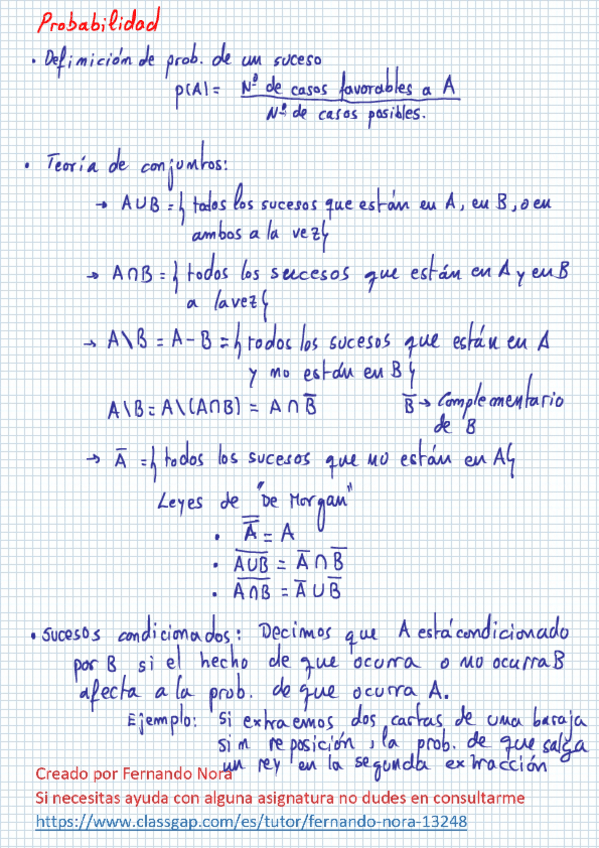 Probabilidad
• Definición de prob. de un suceso
p(A) = Nº de casos favorables a A
Nº de casos posibles.
• Teoría de conjuntos:
→ A∪B = { todos los sucesos que están en A, en B, o en
ambos a la vez}
→ A∩B = { todos los sucesos que están en A y en B
a la vez}
→ A\B = A - B = { todos los sucesos que están en A
y no están en B}
A\B = A\(A∩B) = A ∩ B̅ B̅ → Complementario
de B
→ A̅ = { todos los sucesos que no están en A}
Leyes de "De Morgan"
• A̅̅ = A
• A̅∪̅B̅ = A̅ ∩ B̅
• A̅∩̅B̅ = A̅ ∪ B̅
• Sucesos condicionados: Decimos que A está condicionado
por B si el hecho de que ocurra o no ocurra B
afecta a la prob. de que ocurra A.
Ejemplo: Si extraemos dos cartas de una baraja
sin reposición, la prob. de que salga
un rey en la segunda extracción
Creado por Fernando Nora
Si necesitas ayuda con alguna asignatura no dudes en consultarme
https://www.classgap.com/es/tutor/fernando-nora-13248